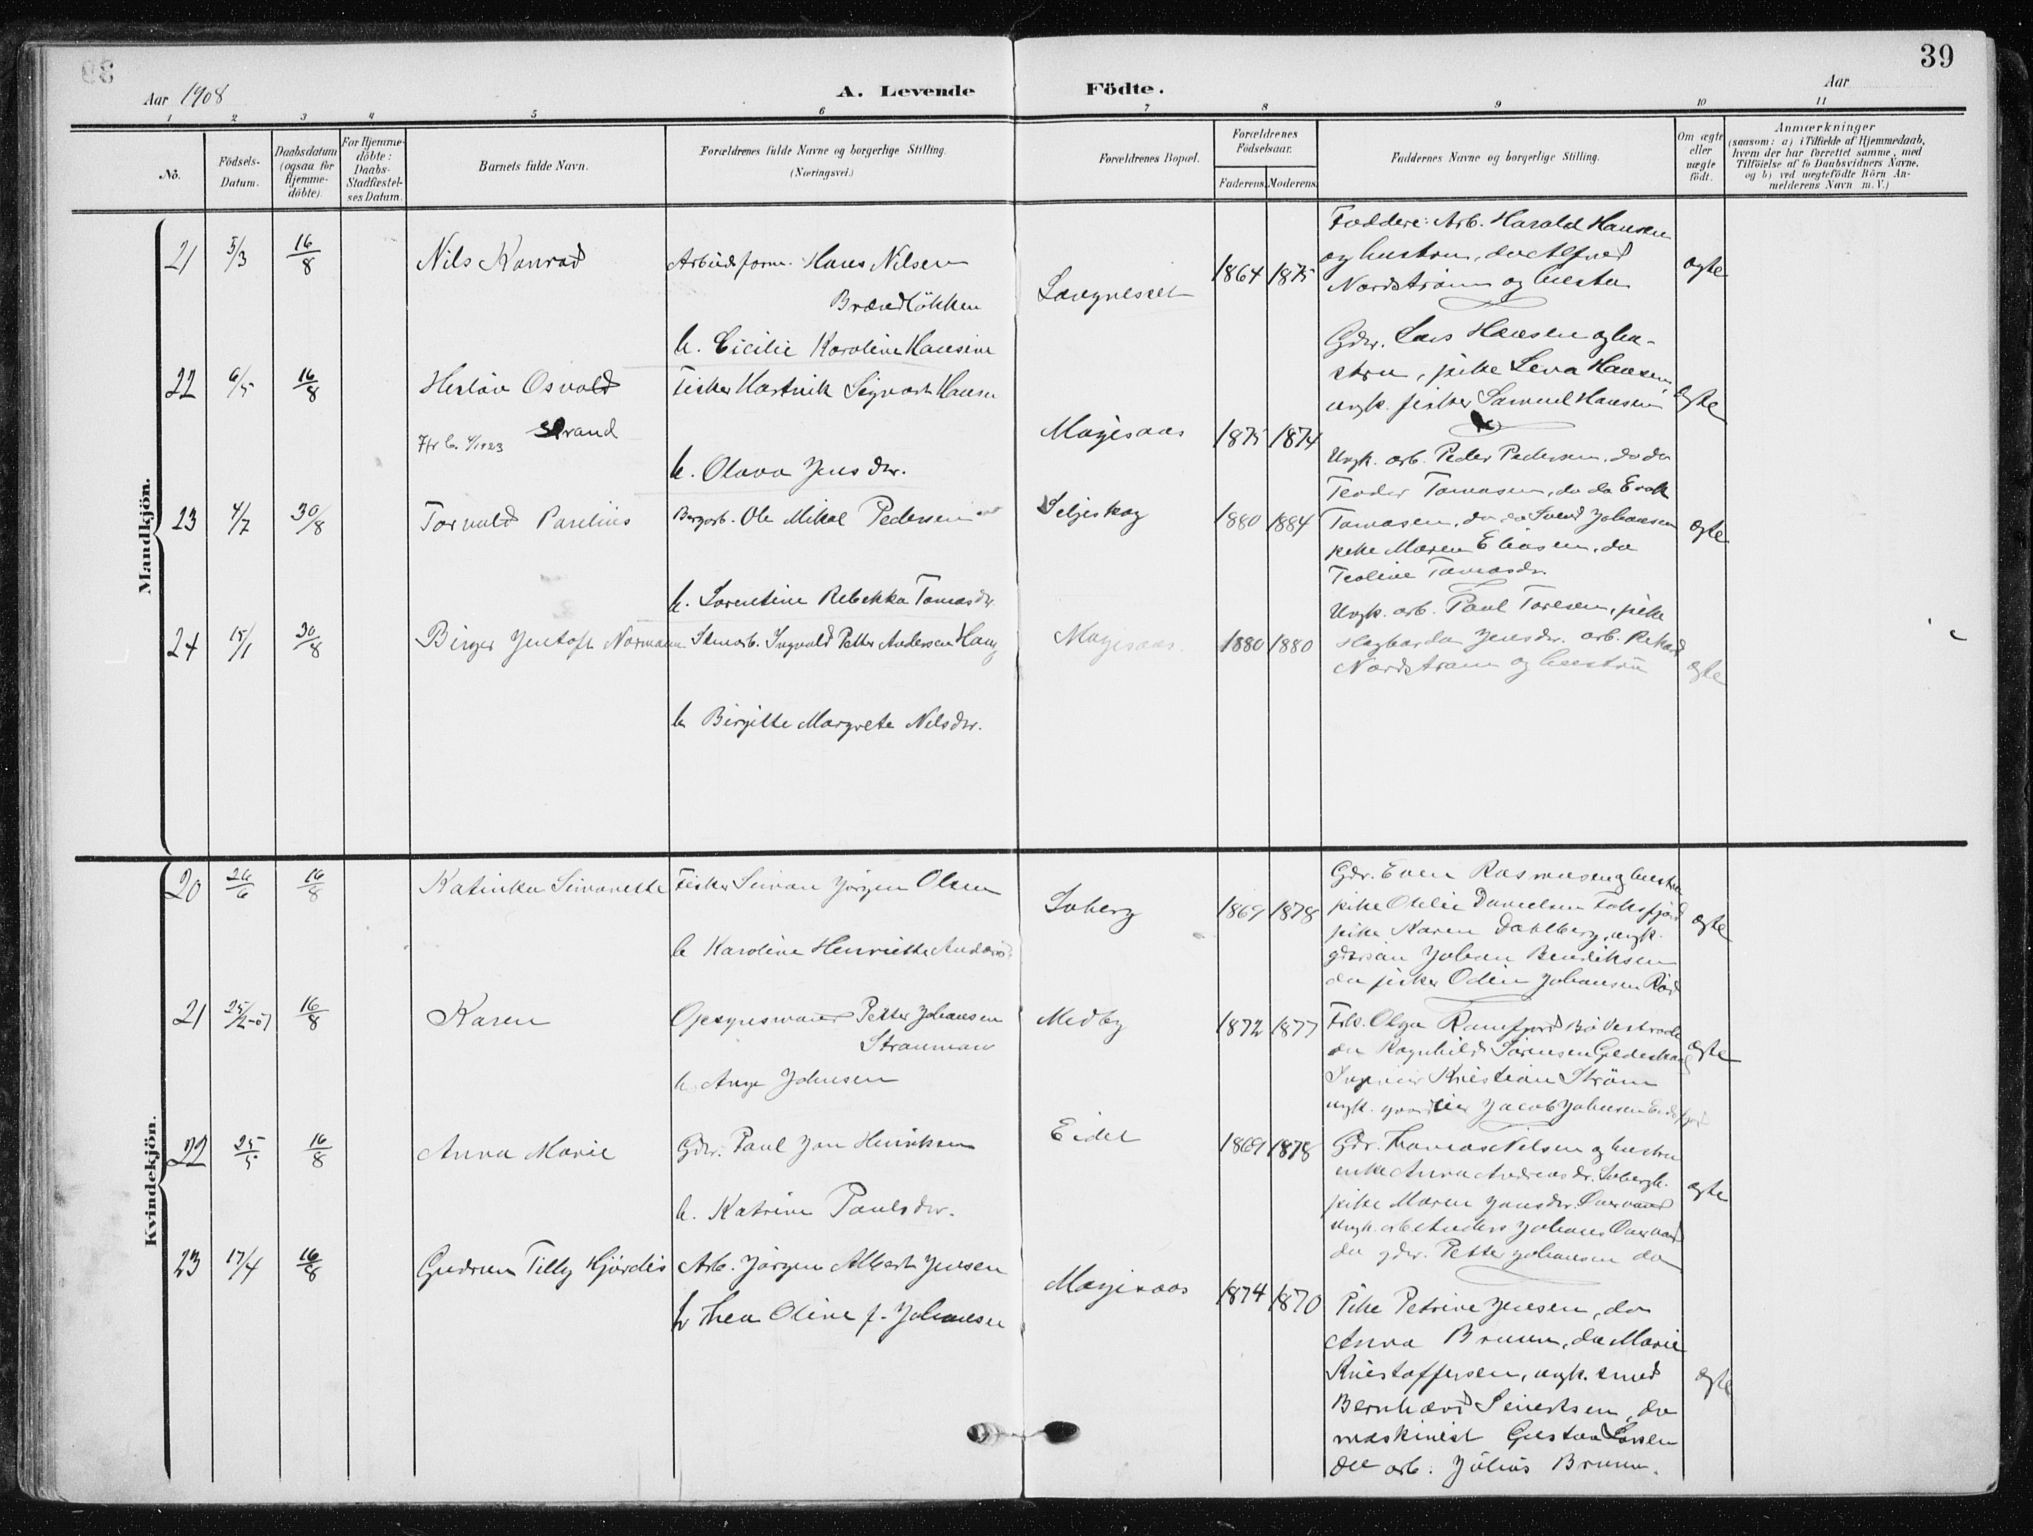 39
Aar 1908 A. Levende Födte. Aar
1 2 3 4 5 6 7 8 9 10 11
No.
Födsels-Datum.
Daabsdatum (ogsaa for Hjemme-döbte).
For Hjemme-döbte: Daabs-Stadfæstel-ses Datum.
Barnets fulde Navn.
Forældrenes fulde Navne og borgerlige Stilling.
(Næringsvei.)
Forældrenes Bopæl.
Forældrenes Födselsaar.
Faderens. Moderens.
Faddernes Navne og borgerlige Stilling.
Om ægte eller uægte födt.
Anmærkninger
(saasom: a) i Tilfælde af Hjemmedaab,
hvem der har forrettet samme, med
Tilföielse af to Daabsvidners Navne,
og b) ved uægtefödte Börn An-
melderens Navn m. V.)
Mandkjön.
21 5/3 16/8 Nils Konrad
Arbeidsform. Hans Nilsen
Brændløkken
h. Cicilie Karoline Hansine
1864 1875
Faddere: Arb. Harald Hansen
og hustru, do Alfred
Nordstrøm og hustru
ægte
22 6/5 16/8 Osvald
Strand
Fisker Hartvik Sigvart Hansen
h. Olava Jensdtr.
Mogisaas
1875 1874
Gdr. Lars Hansen og hu-
stru, pike Lena Hansen,
ungk. fisker Samuel Hansen
ægte
23 4/7 30/8 Torvald Parelius
Bergarb. Ole Mikal Pedersen
h. Lorentine Rebekka Tomasdtr.
Seljeskog
1880 1884
Ungk. arb. Peder Pedersen, do do
Teodor Tomasen, do do
Tomasen, do do Svend Johansen
pike Maren Eliasen, do
Teoline Tomasdr.
ægte
24 15/1 30/8 Birger Jentoft Normann
Ingvald Petter Andersen Haug
h. Birgitte Margrete Nilsdtr.
Mogisaas.
1880 1880
Ungk. arb. Paul Toresen, pike
Hagbarda Jensdr. arb. Rikard
Nordstrøm og hustru
ægte
Kvindekjön.
20 26/6 16/8 Katinka Simonette
Fisker Simon Jørgen Olsen
h. Karoline Henriette
Soberg
1869 1878
Gdr. Even Rasmusen og hustru
pike Otilie Danielsen
pike Karen Dahlberg, ungk.
Johan Bendiksen
do fisker Odin Johansen
ægte
21 16/8 Karen
Opsynsmand Petter Johansen
Strammann
h. Johnsen
Medby
1872 1877
Frk. Olga Ramfjord
do Ragnhild Sørensen Gildeskaal
Ingeniør Kristian Strøm
ungk. Jacob Johnsen
ægte
22 25/5 16/8 Anna Marie
Gdr. Paul Jon Henriksen
h. Katrine Paulsdtr.
Eidet
1869 1878
Gdr. Thomas Nilsen og hustru
enke Anna Andreasdr.
pike Maren Jonsdtr.
ungk. arb. Anders Johans.
do gdr. Petter Johansen do
ægte
23 17/4 16/8 Gudrun Tilly Hjørdis
Arb. Jørgen Albert Jensen
h. Thea Oline f. Johansen
Mogisaas
1874 1870
Pike Petrine Jensen, do
Anna Bruun, do Marie
Kristoffersen, ungk. smed
Bernhard Sivertsen, do
maskinist Gustav Larsen
do arb. Julius Bruun.
ægte